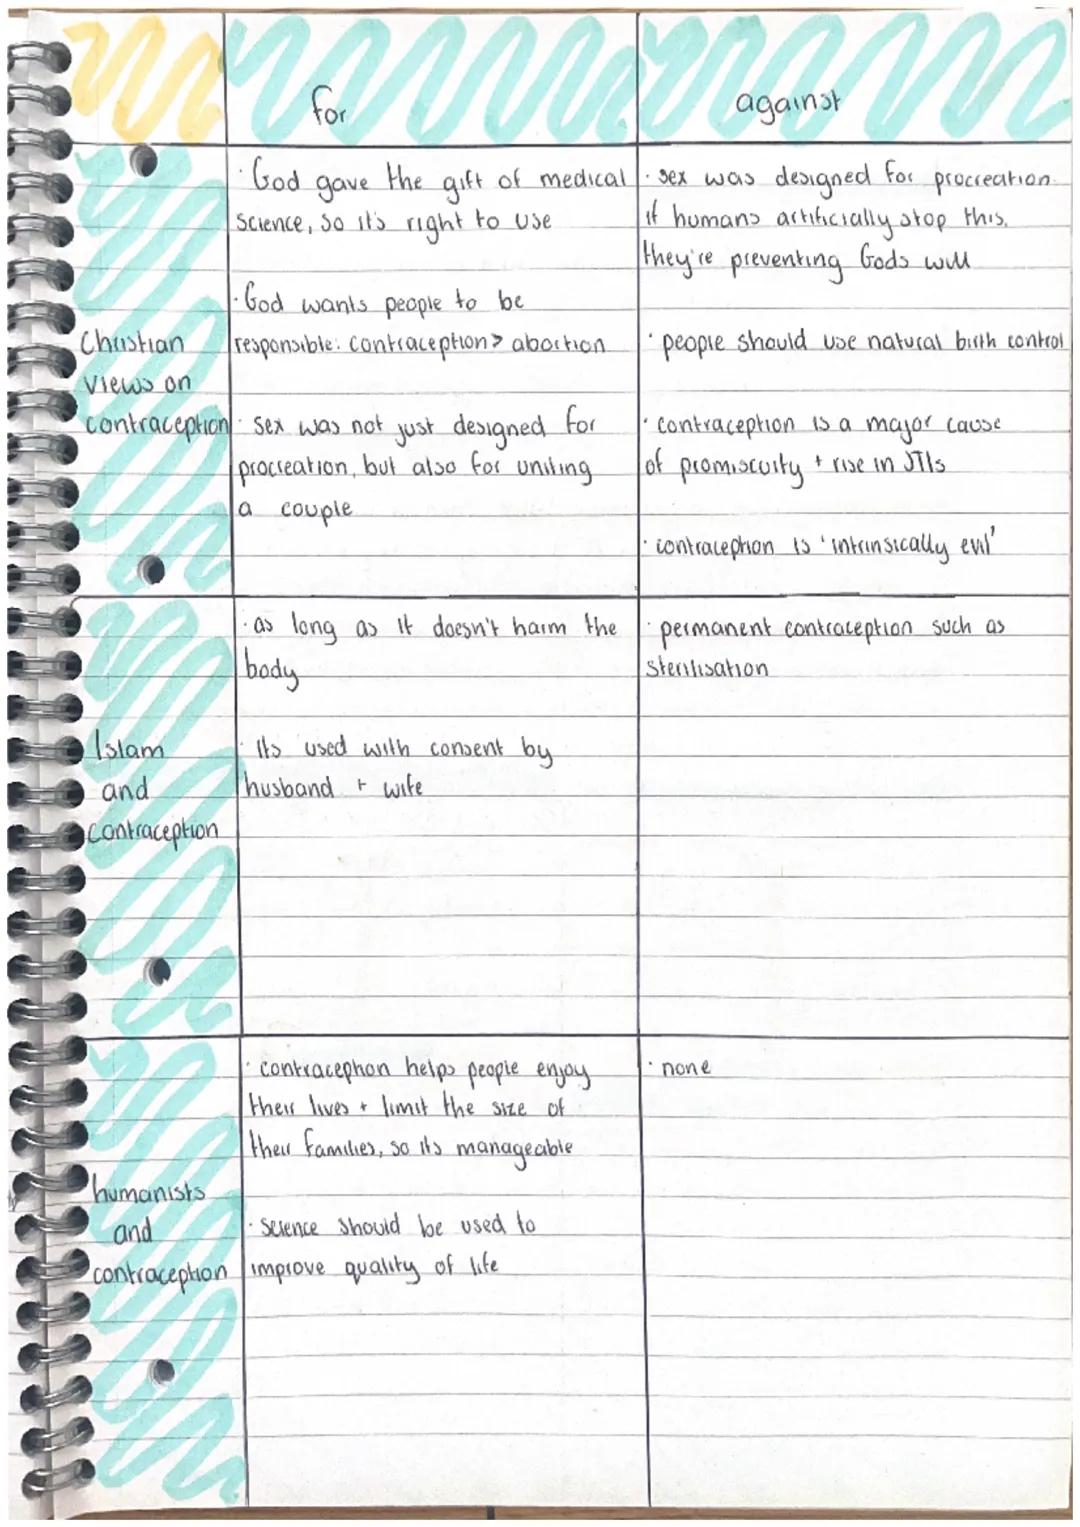 for
against
Christian
views on
contraception
· God gave the gift of medical
science, so it's right to use
· God wants people to be
responsible: contraception > abortion
· sex was not just designed for
procreation, but also for uniting
a couple
· sex was designed for procreation.
if humans artificially stop this,
they're preventing Gods will
· people should use natural birth control
· contraception is a major cause
of promiscuity + rise in STIs
· contraception is 'intrinsically evil'
Islam
and
contraception
· as long as it doesn't harm the
body
· its used with consent by
husband + wife
· permanent contraception such as
sterilisation
humanists
and
contraception
· contraception helps people enjoy
their lives + limit the size of
their families, so its manageable
· science should be used to
improve quality of life
· none